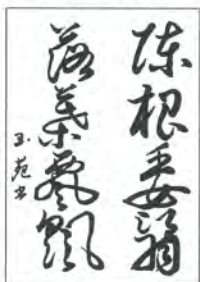 陈根委翳
落叶飘飖
玉苑书